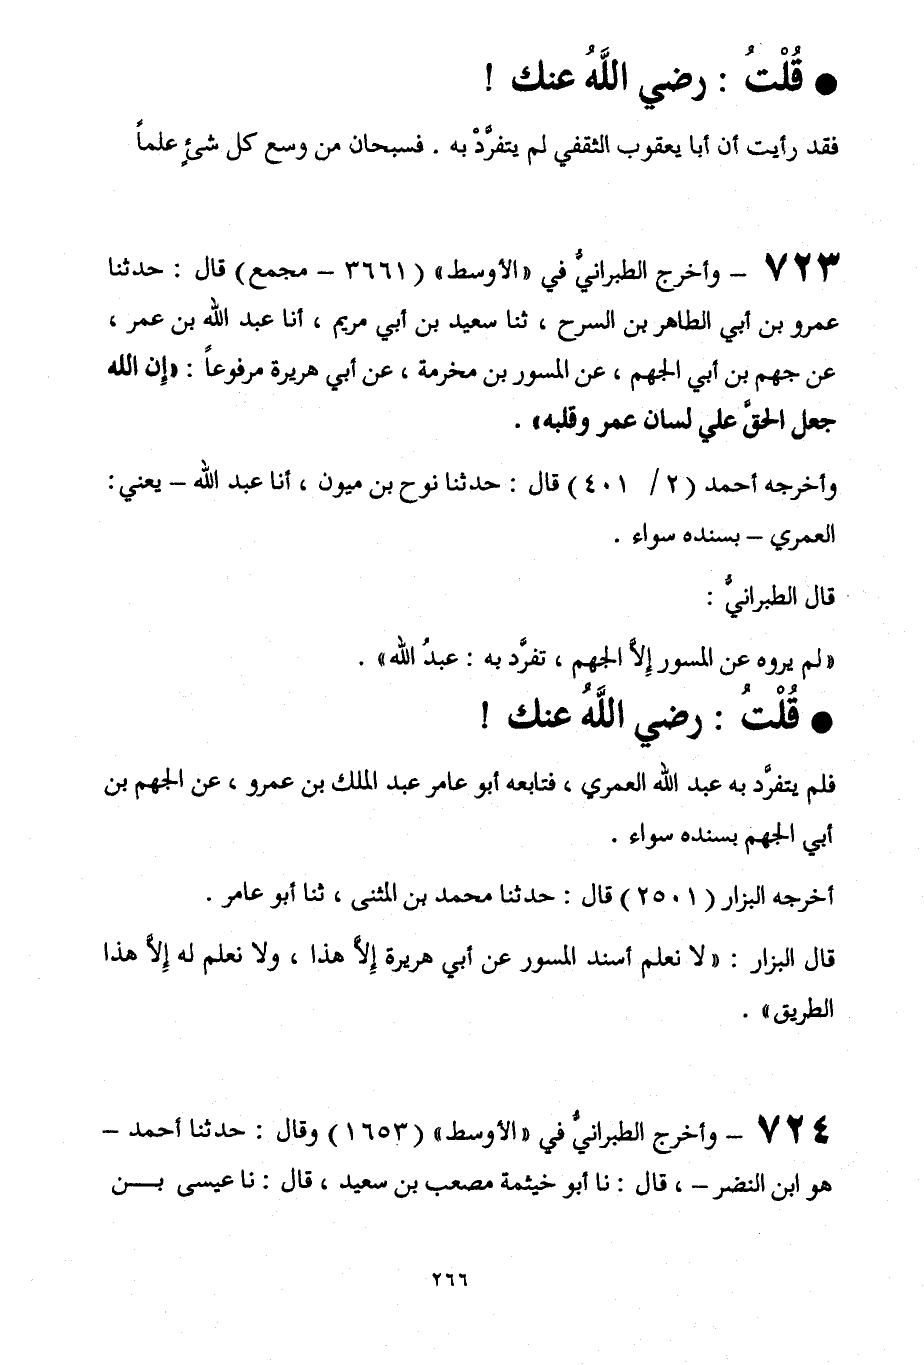 ● قُلْتُ : رضي اللَّهُ عنك !
فقد رأيت أن أبا يعقوب الثقفي لم يتفرَّدْ به . فسبحان من وسع كل شئٍ علماً
٧٢٣ – وأخرج الطبرانيُّ في «الأوسط» (٣٦٦١ – مجمع) قال : حدثنا
عمرو بن أبي الطاهر بن السرح ، ثنا سعيد بن أبي مريم ، أنا عبد الله بن عمر ،
عن جهم بن أبي الجهم ، عن المسور بن مخرمة ، عن أبي هريرة مرفوعاً : «إن الله
جعل الحقَّ علي لسان عمر وقلبه» .
وأخرجه أحمد (٢ / ٤٠١) قال : حدثنا نوح بن ميون ، أنا عبد الله – يعني :
العمري – بسنده سواء .
قال الطبرانيُّ :
«لم يروه عن المسور إلاَّ الجهم ، تفرَّد به : عبدُ الله» .
● قُلْتُ : رضي اللَّهُ عنك !
فلم يتفرَّد به عبد الله العمري ، فتابعه أبو عامر عبد الملك بن عمرو ، عن الجهم بن
أبي الجهم بسنده سواء .
أخرجه البزار (٢٥٠١) قال : حدثنا محمد بن المثنى ، ثنا أبو عامر .
قال البزار : «لا نعلم أسند المسور عن أبي هريرة إلاَّ هذا ، ولا نعلم له إلاَّ هذا
الطريق» .
٧٢٤ – وأخرج الطبرانيُّ في «الأوسط» (١٦٥٣) وقال : حدثنا أحمد –
هو ابن النضر – ، قال : نا أبو خيثمة مصعب بن سعيد ، قال : نا عيسى بـــن
٢٦٦